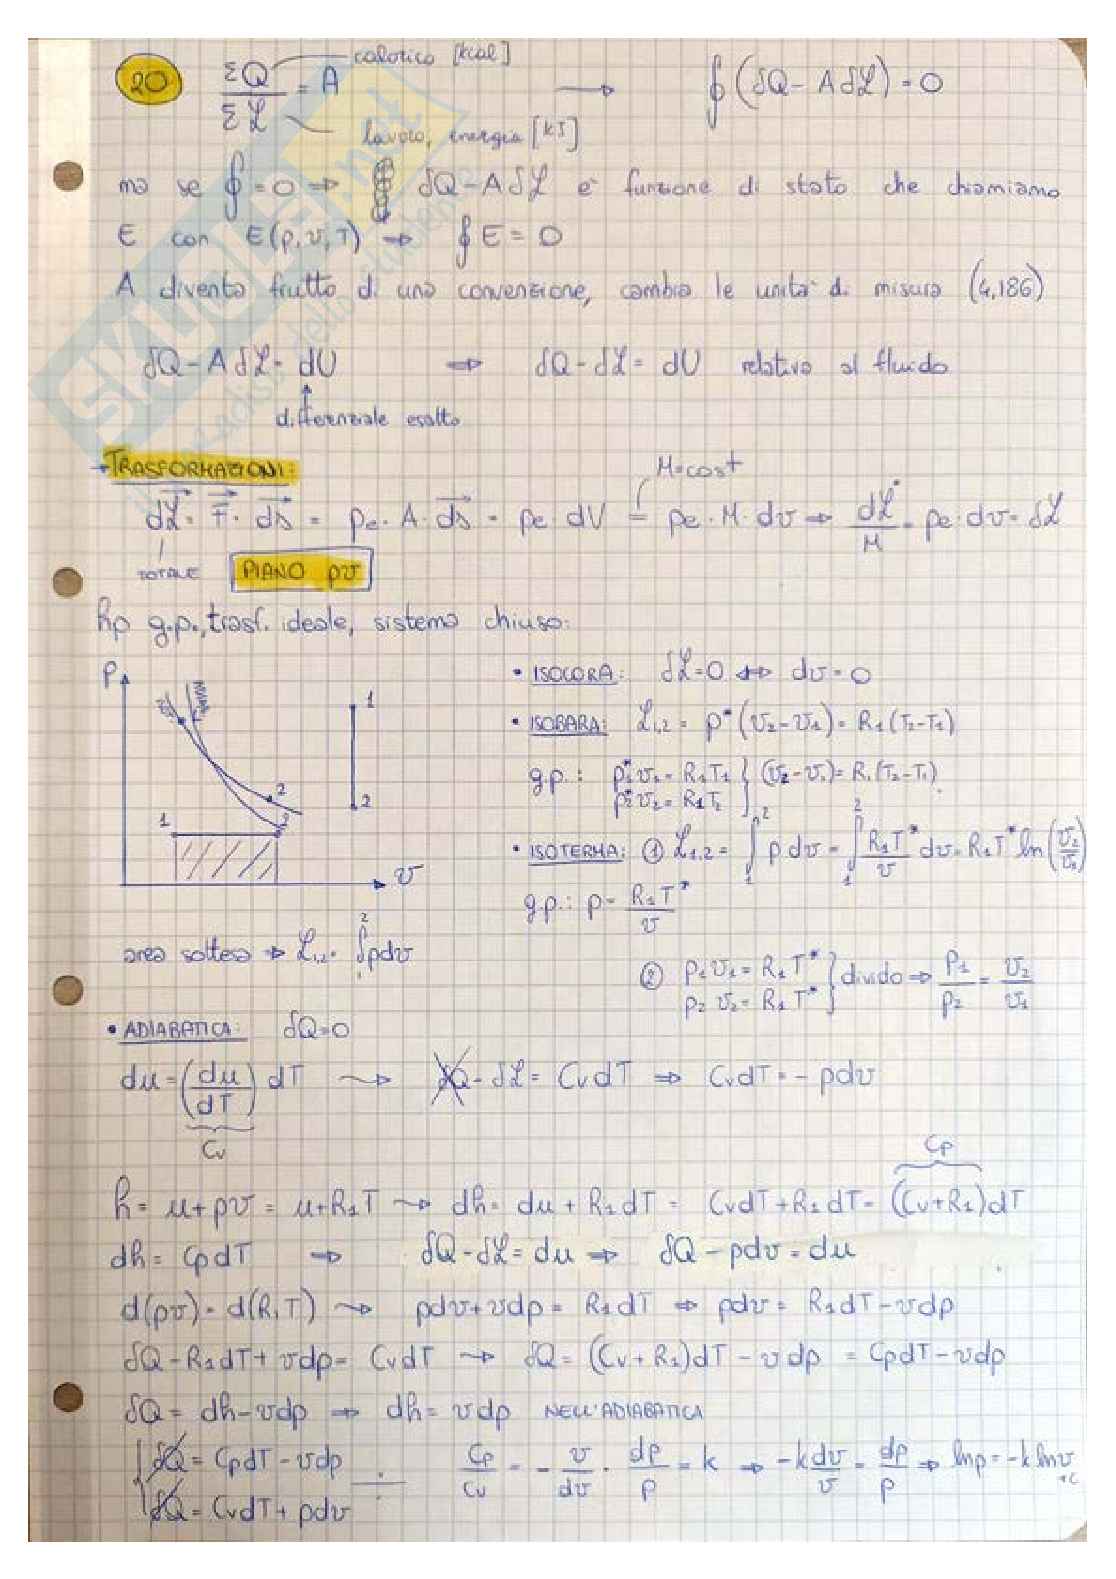 20 ΣQ/Σℒ = A calorico [kcal] → ∮(δQ - Aδℒ) = 0
lavoro, energia [kJ]
ma se ∮ = 0 ⇒ δQ - Aδℒ è funzione di stato che chiamiamo
E con E(p, v, T) → ∮E = 0
A diventa frutto di una convenzione, cambia le unità di misura (4,186)
δQ - Aδℒ = dU ⇒ δQ - dℒ = dU relativo al fluido
differenziale esatto
→ TRASFORMAZIONI:
M=cost
dℒ = F · ds = pe · A · ds = pe dV = pe · M · dv ⇒ dℒ*/M = pe · dv = δℒ
TOTALE PIANO pv
hp g.p., trasf. ideale, sistema chiuso:
p
1
2
1
2
2
v
area sottesa ⇒ ℒ1,2 = ∫₁² pdv
• ISOCORA: δℒ=0 ⇔ dv=0
• ISOBARA: ℒ1,2 = p*(v2-v1) = R1(T2-T1)
g.p.: p1* v1 = R1T1 } (v2-v1) = R1(T2-T1)
p2* v2 = R1T2
• ISOTERMA: ① ℒ1,2 = ∫₁² p dv = ∫₁² R1T*/v dv = R1T* ln(v2/v1)
g.p.: p = R1T*/v
② p1v1 = R1T* } divido ⇒ p1/p2 = v2/v1
p2v2 = R1T*
• ADIABATICA: δQ=0
du = (du/dT) dT ⇝ δQ - δℒ = CvdT ⇒ CvdT = - pdv
Cv
Cp
h = u+pv = u+R1T ⇝ dh = du + R1dT = CvdT+R1dT = (Cv+R1)dT
dh = CpdT ⇒ δQ-δℒ=du ⇒ δQ-pdv=du
d(pv) = d(R1T) ⇝ pdv+vdp = R1dT ⇒ pdv = R1dT-vdp
δQ-R1dT+vdp = CvdT ⇝ δQ = (Cv+R1)dT - vdp = CpdT-vdp
δQ = dh-vdp ⇒ dh = vdp NELL'ADIABATICA
δQ = CpdT - vdp
δQ = CvdT + pdv
Cp/Cv = - v/dv · dp/p = k ⇒ -k dv/v = dp/p ⇒ lnp = -k lnv
+c